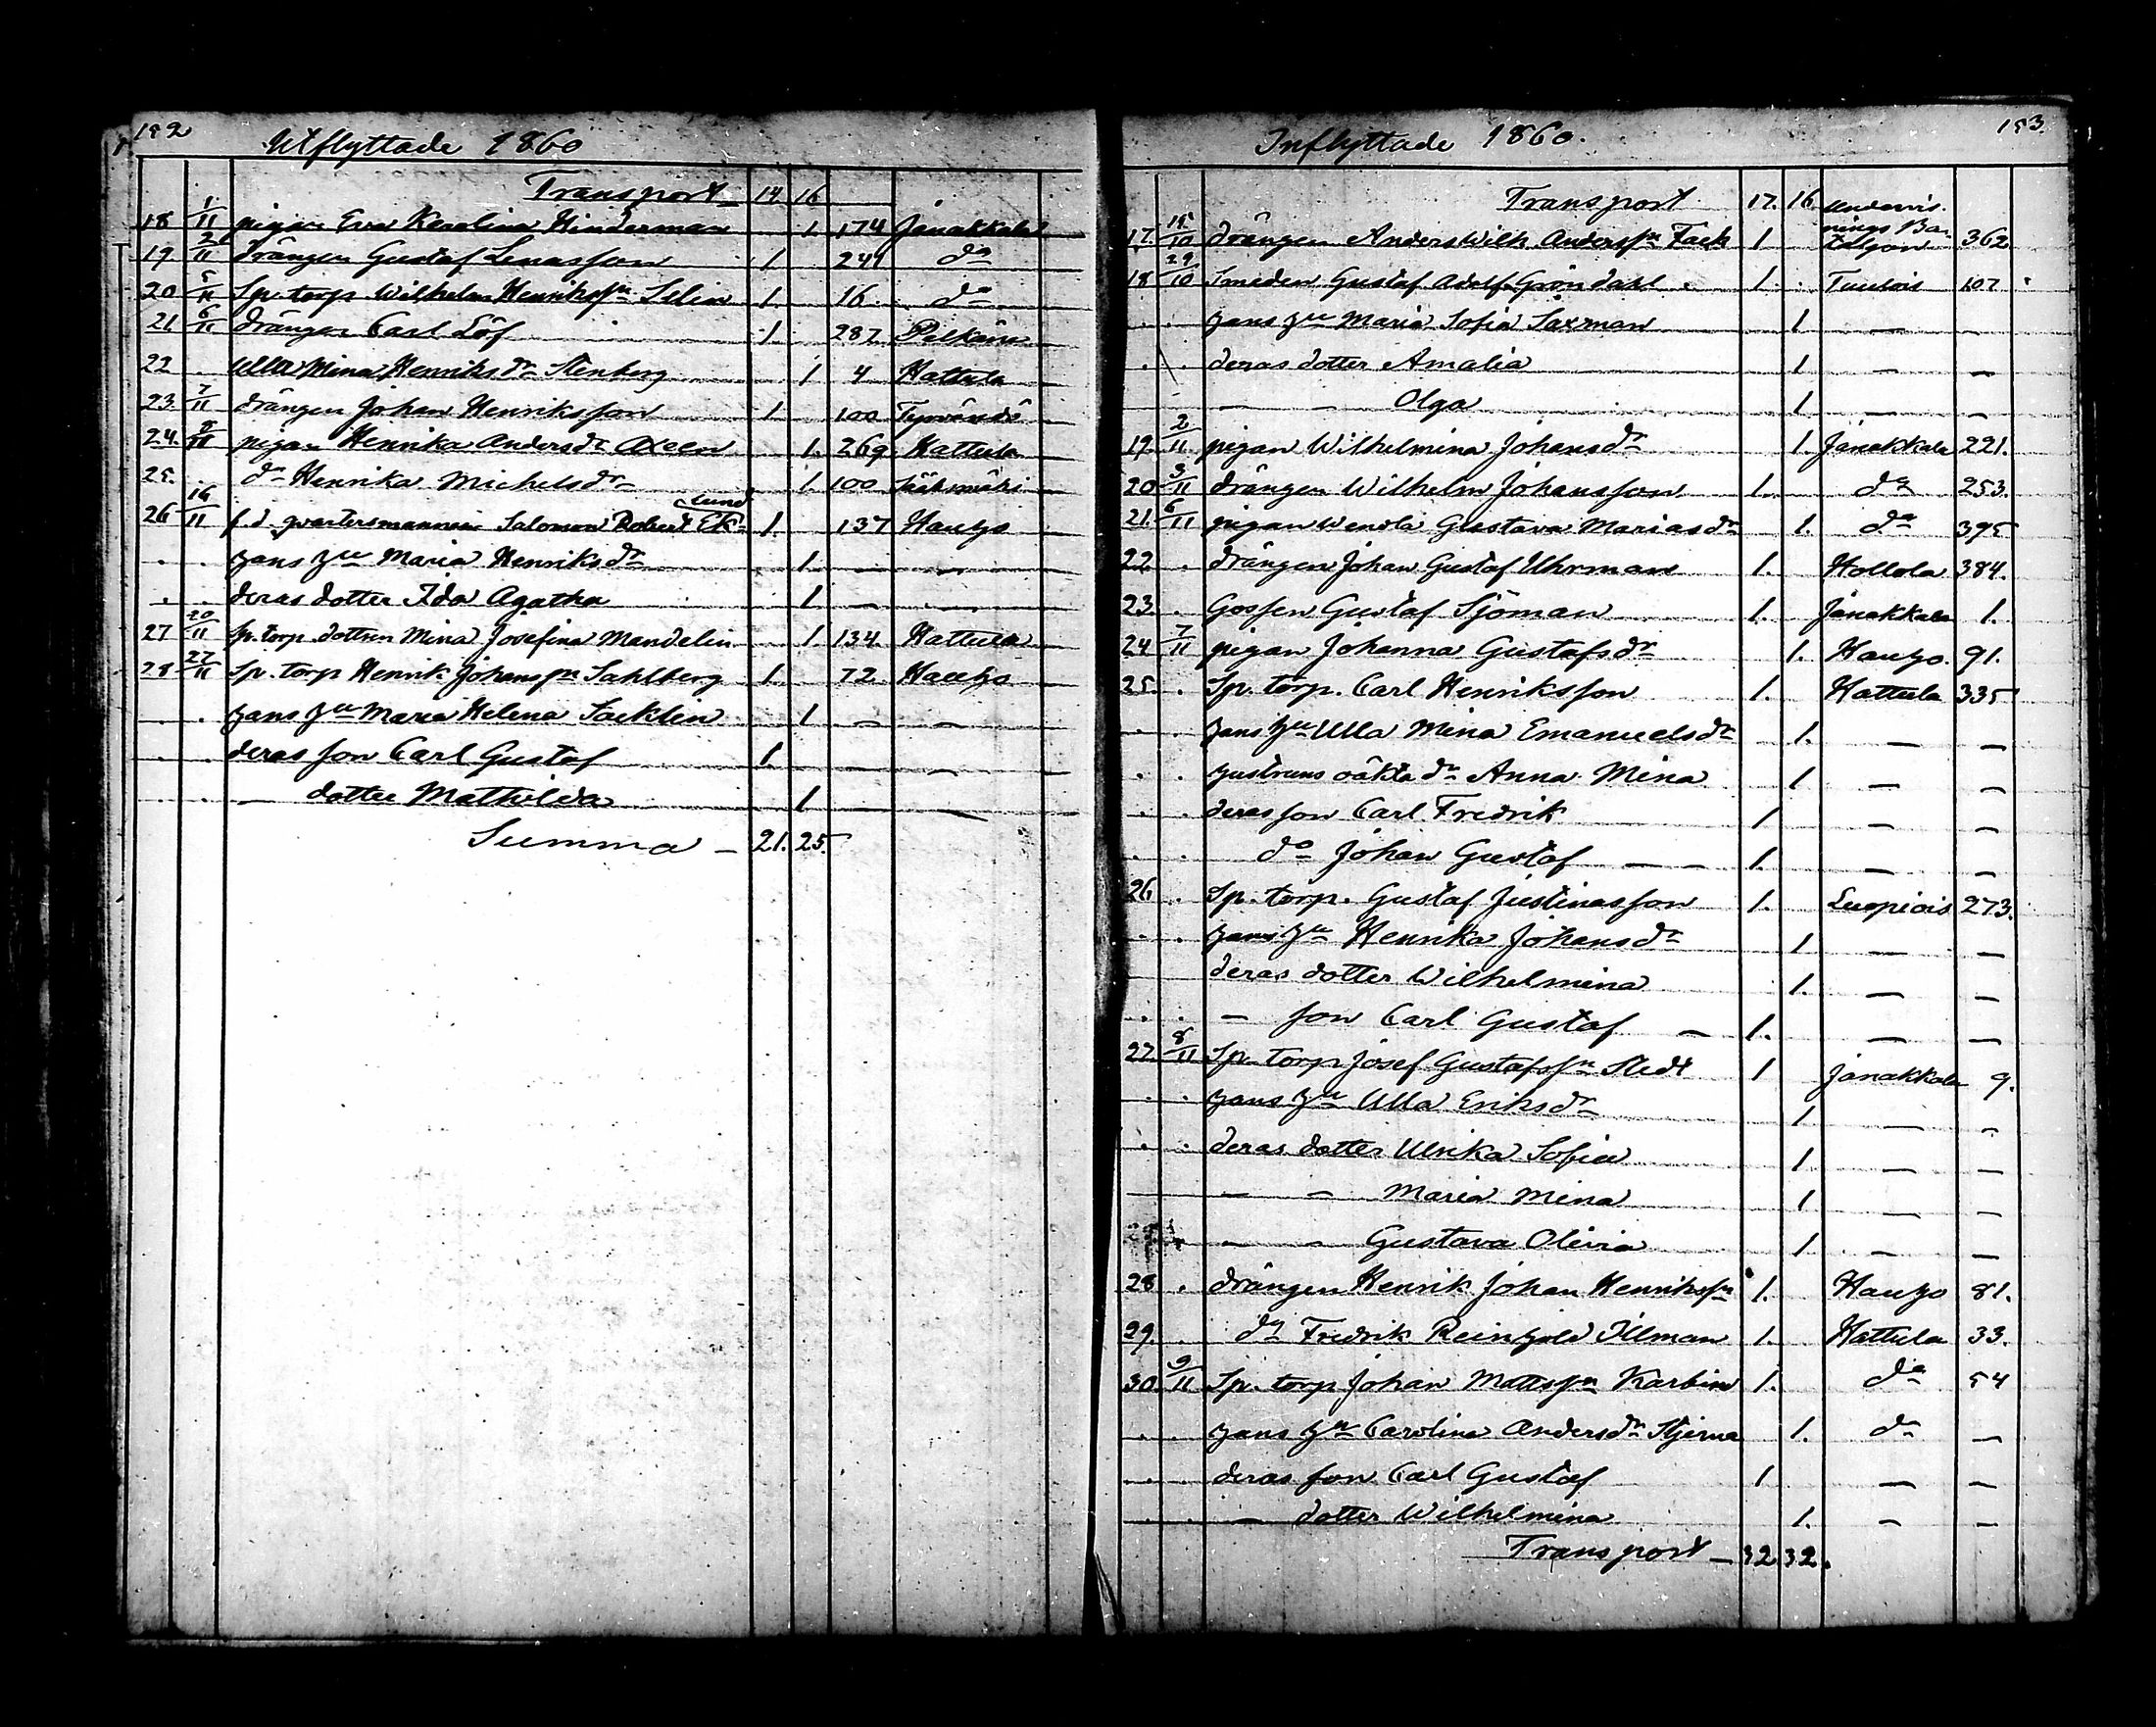 192
Utflyttade 1860
Transport 14 16
18 1/11 pigan Eva Karolina Hinderman 1. 174 Janakkala
19 2/11 drängen Gustaf Lenasson 1 241 do
20 5/11 Sp. torp Wilhelm Henrikssn Selin 1 16 do
21. 6/11 drängen Carl Löf 1. 287 Pelkäne
22 Ulla Mina Henriksdr Stenberg 1 4 Hattula
23. 7/11 drängen Johan Henriksson 1 100 Tyrvändö
24. 8/11 pigan Henrika Andersdr Axeen 1. 269 Hattula
25. do Henrika Michelsdr 1. 100 Sääxmäki
26 16/11 f.d. qvartersmannen Salomon Robert Ek=lund 1. 137 Hauho
hans hu Maria Henriksdr 1. — —
deras dotter Ida Agatha 1 — —
27 20/11 sp. torp. dottren Mina Josefina Mandelin 1. 134. Hattula
28 27/11 Sp. torp Henrik Johanssn Sahlberg 1. 72 Hauho
hans hu Maria Helena Säcklin 1 — —
deras son Carl Gustaf 1. — —
— dotter Mathilda 1 — —
Summa — 21. 25.
193
Inflyttade 1860.
Transport 17. 16
17. 15/10 drängen Anders Wilh. Anderssn Fack 1 Undervis=nings Ba=taljon 362
18 29/10 Smeden Gustaf Adolf Gröndahl 1. Tuulois 107
hans hu Maria Sofia Saxman 1 — —
deras dotter Amalia 1 — —
— — Olga 1 — —
19. 2/11 pigan Wilhelmina Johansdr 1. Janakkala 221.
20 3/11 drängen Wilhelm Johansson 1. do 253.
21. 6/11 pigan Wendla Gustava Mariasdr 1. do 395
22 drängen Johan Gustaf Uhrman 1. Hollola 384.
23. Gossen Gustaf Sjöman 1. Janakkala 1.
24 7/11 pigan Johanna Gustafsdr 1. Hauho. 91.
25. Sp. torp. Carl Henriksson 1. Hattula 335
hans hu Ulla Mina Emanuelsdr 1. — —
hustruns oäkta dr Anna Mina 1 — —
deras son Carl Fredrik 1 — —
do Johan Gustaf — — 1. — —
26 Sp. torp. Gustaf Justinasson 1. Luopiois 273.
hans hu Henrika Johansdr 1 — —
deras dotter Wilhelmina 1. — —
— son Carl Gustaf — 1. — —
27 8/11 Sp. torp Josef Gustafssn Stedt 1 Janakkala 9.
hans hu Ulla Eriksdr 1 — —
deras dotter Ulrika Sofia 1 — —
— — Maria Mina 1 — —
— — Gustava Olivia 1 — —
28 drängen Henrik Johan Henrikssn 1. Hauho 81.
29. do Fredrik Reinhold Illman 1. Hattula 33.
30. 9/11 Sp. torp Johan Mattssn Karbin 1. do 54
hans hu Carolina Andersdr Stjerna 1. do —
deras son Carl Gustaf 1 — —
— dotter Wilhelmina 1. — —
Transport — 32 32.